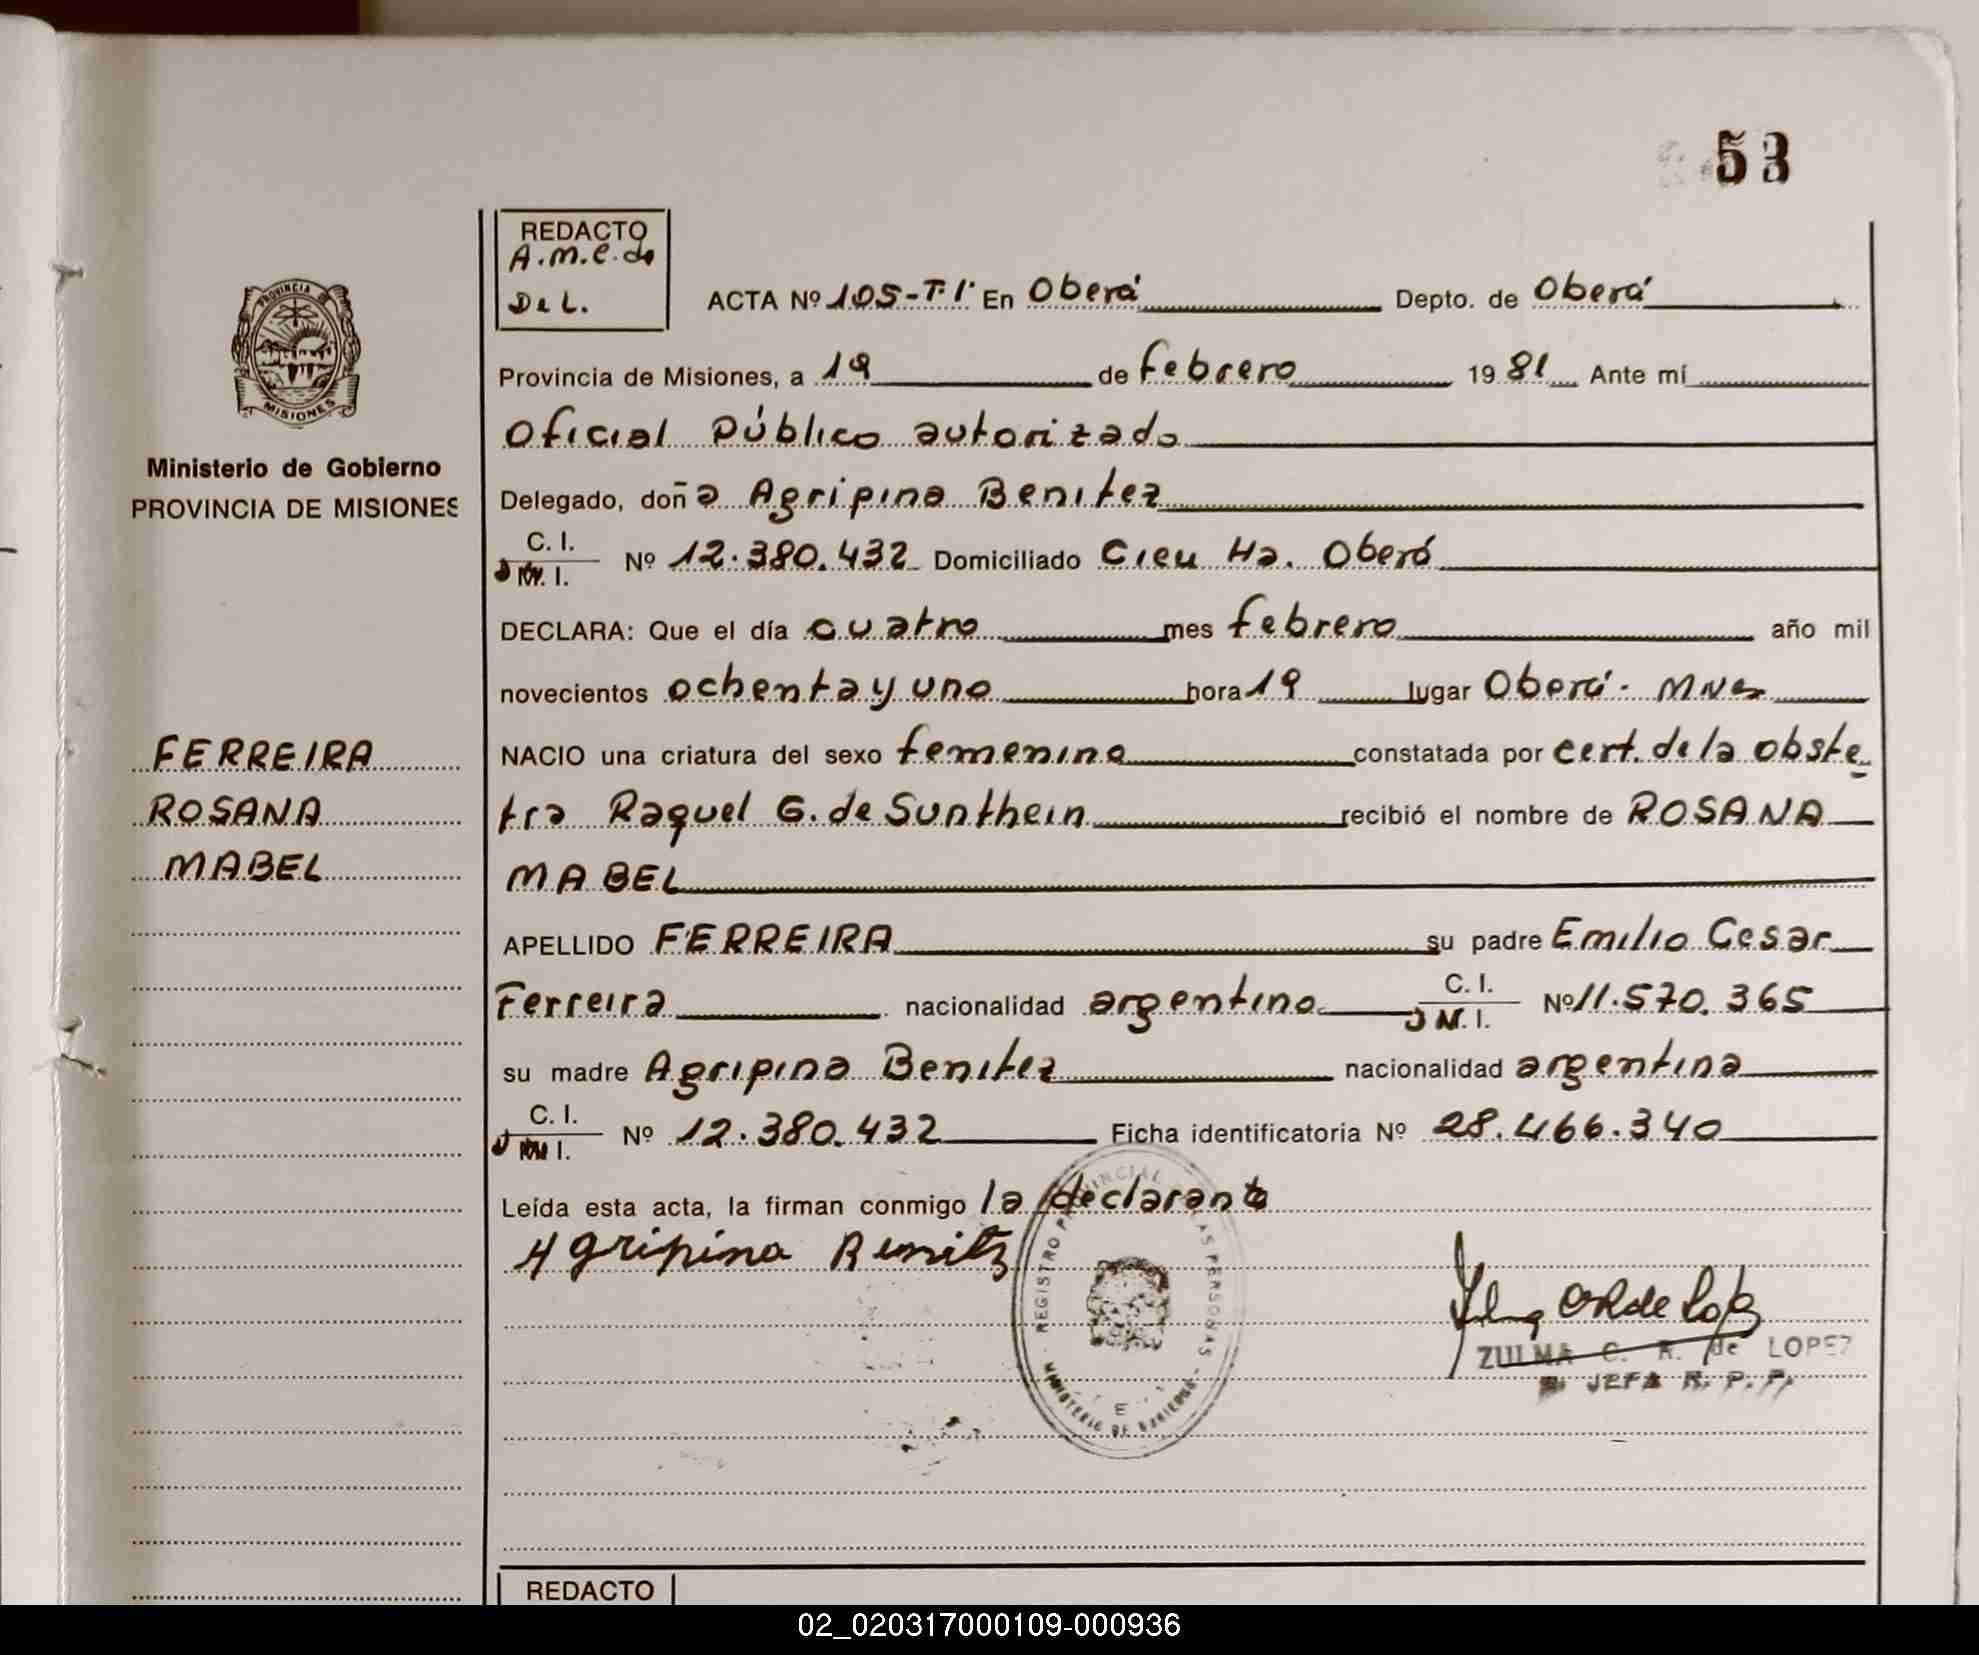 53
REDACTO
A.M.E. de
De L.
ACTA Nº 105-T.I. En Oberá Depto. de Oberá
PROVINCIA
MISIONES
Provincia de Misiones, a 19 de febrero 1981 Ante mí
Oficial Público autorizado
Ministerio de Gobierno
PROVINCIA DE MISIONES
Delegado, doña Agripina Benitez
C. I.
Nº 12.380.432 Domiciliado Cieu Ha. Oberá
I.
DECLARA: Que el día cuatro mes febrero año mil
novecientos ochenta y uno hora 19 lugar Oberá - Mnes
FERREIRA
ROSANA
MABEL
NACIO una criatura del sexo femenino constatada por cert. de la obste
tra Raquel G. de Sunthein recibió el nombre de ROSANA
MABEL
APELLIDO FERREIRA su padre Emilio Cesar
Ferreira nacionalidad argentino C. I. Nº 11.570.365
I.
su madre Agripina Benitez nacionalidad argentina
C. I.
Nº 12.380.432 Ficha identificatoria Nº 28.466.340
I.
Leída esta acta, la firman conmigo la declarante
Agripina Benitz
REGISTRO PROVINCIAL DE LAS PERSONAS
MINISTERIO DE GOBIERNO
E
ZULMA C. R. de LOPEZ
JEFA R. P. P.
REDACTO
02_020317000109-000936